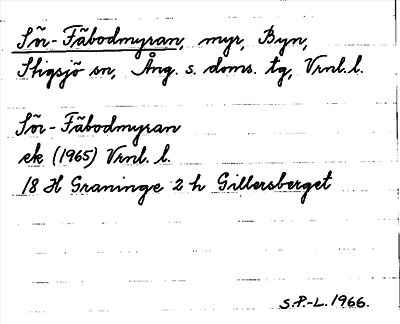 Sör-Fäbodmyran, myr, Byn,
Stigsjö sn, Ång. s. doms. tg, Vrnl.l.
Sör-Fäbodmyran
ek (1965) Vrnl. l.
18 H Graninge 2 h Gillersberget
S.P.-L. 1966.